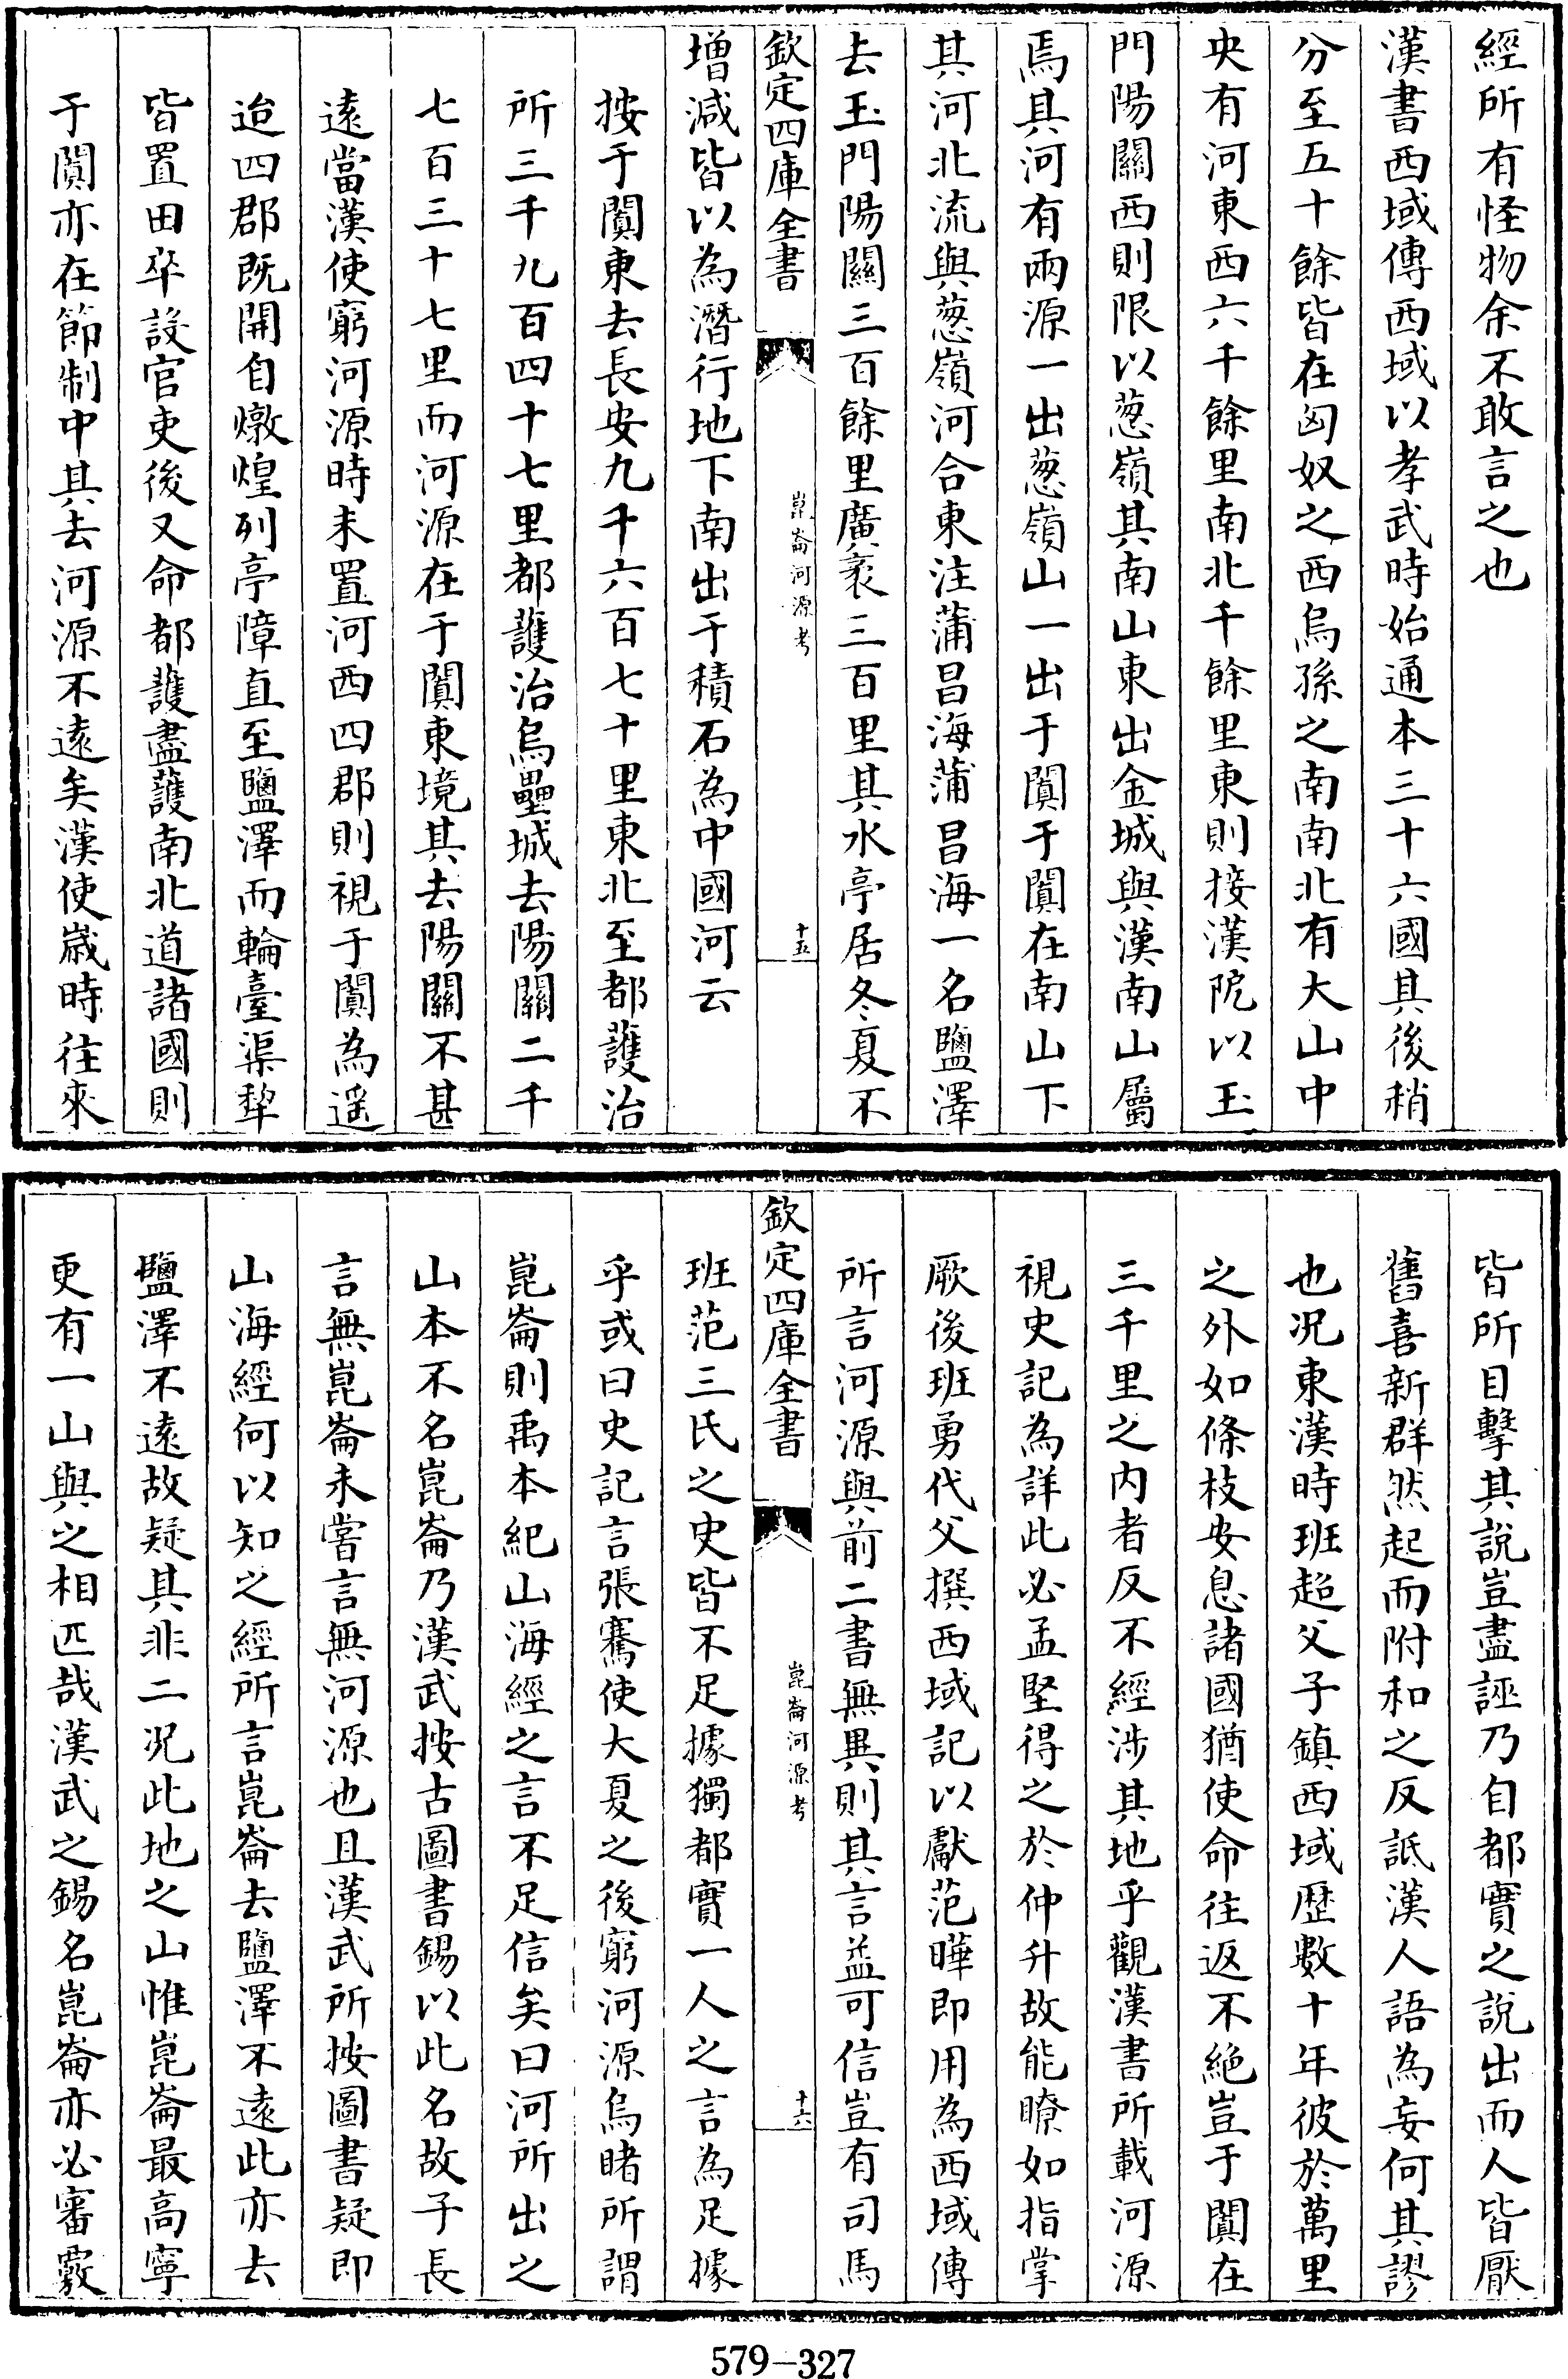 經所有怪物余不敢言之也
漢書西域傳西域以孝武時始通本三十六國其後稍
分至五十餘皆在匈奴之西烏孫之南南北有大山中
央有河東西六千餘里南北千餘里東則接漢阸以玉
門陽關西則限以葱嶺其南山東出金城與漢南山屬
焉其河有兩源一出葱嶺山一出于闐于闐在南山下
其河北流與葱嶺河合東注蒲昌海蒲昌海一名鹽澤
去玉門陽關三百餘里廣袤三百里其水亭居冬夏不
欽定四庫全書
崑崙河源考
十五
增減皆以為潛行地下南出于積石為中國河云
按于闐東去長安九千六百七十里東北至都護治
所三千九百四十七里都護治烏壘城去陽關二千
七百三十七里而河源在于闐東境其去陽關不甚
遠當漢使窮河源時未置河西四郡則視于闐為遥
迨四郡既開自燉煌列亭障直至鹽澤而輪臺渠犂
皆置田卒設官吏後又命都護盡護南北道諸國則
于闐亦在節制中其去河源不遠矣漢使嵗時往來
皆所目擊其說豈盡誣乃自都實之說出而人皆厭
舊喜新群然起而附和之反詆漢人語為妄何其謬
也况東漢時班超父子鎮西域歷數十年彼於萬里
之外如條枝安息諸國猶使命往返不絶豈于闐在
三千里之内者反不經涉其地乎觀漢書所載河源
視史記為詳此必孟堅得之於仲升故能瞭如指掌
厥後班勇代父撰西域記以獻范曄即用為西域傳
所言河源與前二書無異則其言益可信豈有司馬
欽定四庫全書
崑崙河源考
十六
班范三氏之史皆不足據獨都實一人之言為足據
乎或曰史記言張騫使大夏之後窮河源烏睹所謂
崑崙則禹本紀山海經之言不足信矣曰河所出之
山本不名崑崙乃漢武按古圖書錫以此名故子長
言無崑崙未嘗言無河源也且漢武所按圖書疑即
山海經何以知之經所言崑崙去鹽澤不遠此亦去
鹽澤不遠故疑其非二况此地之山惟崑崙最高寧
更有一山與之相匹哉漢武之錫名崑崙亦必審覈
579—327